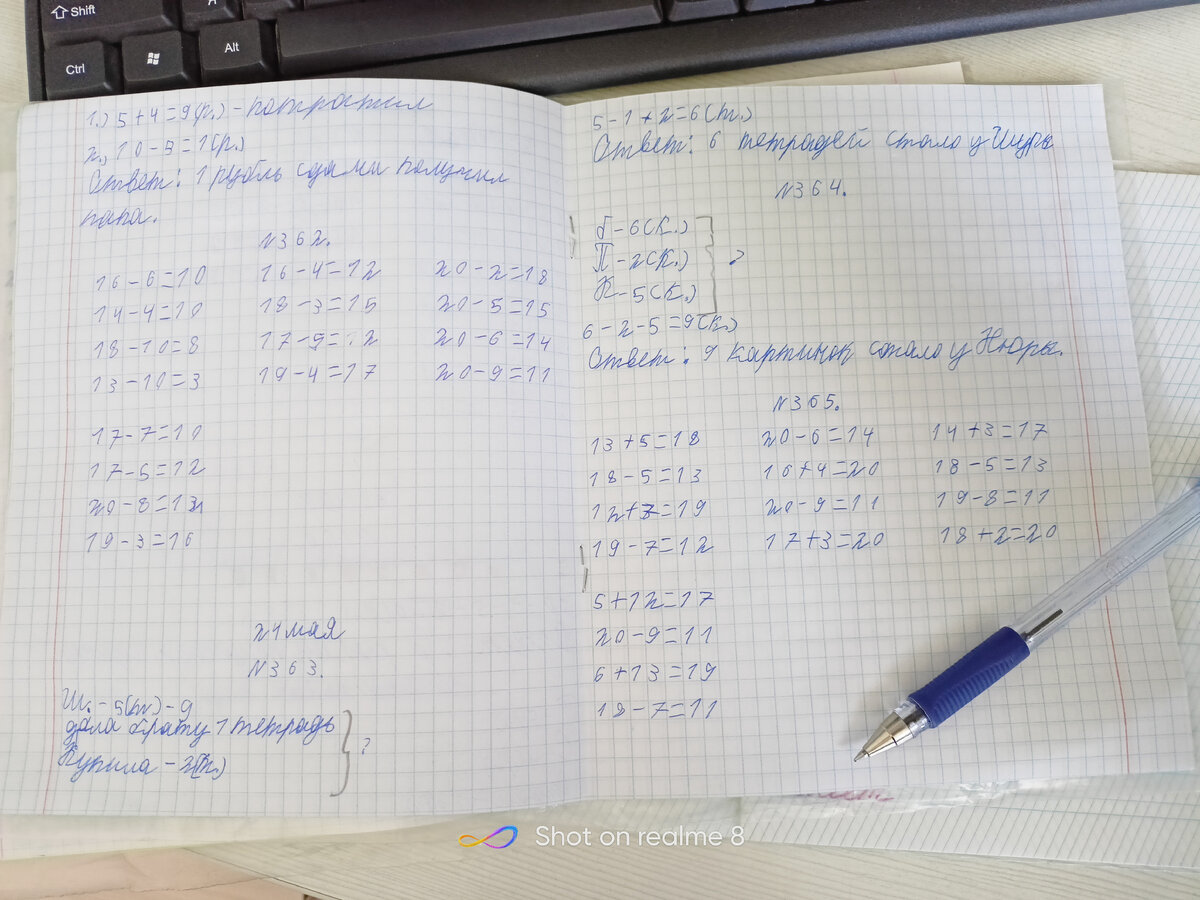 Shift
A
Ctrl
Alt
1.) 5+4=9(р.) - потратил
2.) 10-9=1(р.)
Ответ: 1 рубль сдачи получил
папа.
№362.
16-6=10 16-4=12 20-2=18
14-4=10 18-3=15 20-5=15
18-10=8 17-9=12 20-6=14
13-10=3 19-4=17 20-9=11
17-7=10
17-5=12
20-8=12
19-3=16
21 мая
№363.
Ш. - 5(т) - 9
дала брату 1 тетрадь
Купила - 2(т.)
?
5-1+2=6(т.)
Ответ: 6 тетрадей стало у Шуры
№364.
Б-6(к.)
П-2(к.) ?
К-5(к.)
6-2-5=9(к.)
Ответ: 9 картинок стало у Нюры.
№365.
13+5=18 20-6=14 14+3=17
18-5=13 16+4=20 18-5=13
12+7=19 20-9=11 19-8=11
19-7=12 17+3=20 18+2=20
5+12=17
20-9=11
6+13=19
18-7=11
Shot on realme 8